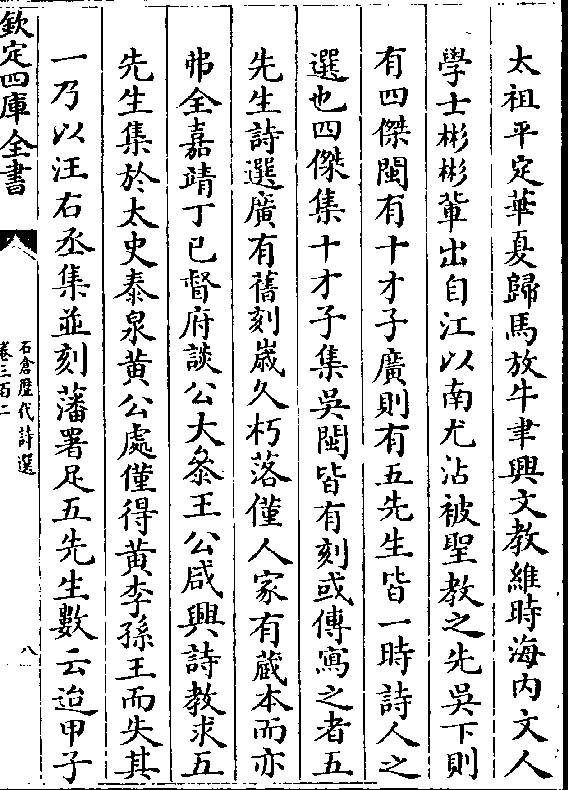 太祖平定華夏歸馬放牛聿興文教維時海内文人
學士彬彬輩出自江以南尤沾被聖教之先吳下則
有四傑閩有十才子廣則有五先生皆一時詩人之
選也四傑集十才子集吳閩皆有刻或傳寫之者五
先生詩選廣有舊刻嵗久朽落僅人家有蔵本而亦
弗全嘉靖丁巳督府談公大叅王公咸興詩教求五
先生集於太史泰泉黄公處僅得黄李孫王而失其
一乃以汪右丞集並刻藩署足五先生數云迨甲子
欽定四庫全書
石倉歴代詩選
卷三百二
八